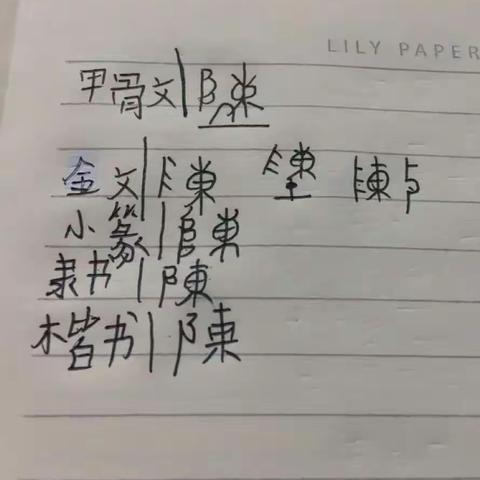 LILY PAPER
甲骨文|陳
金文|陳 塦 陳
小篆|陳
隶书|陳
楷书|陳